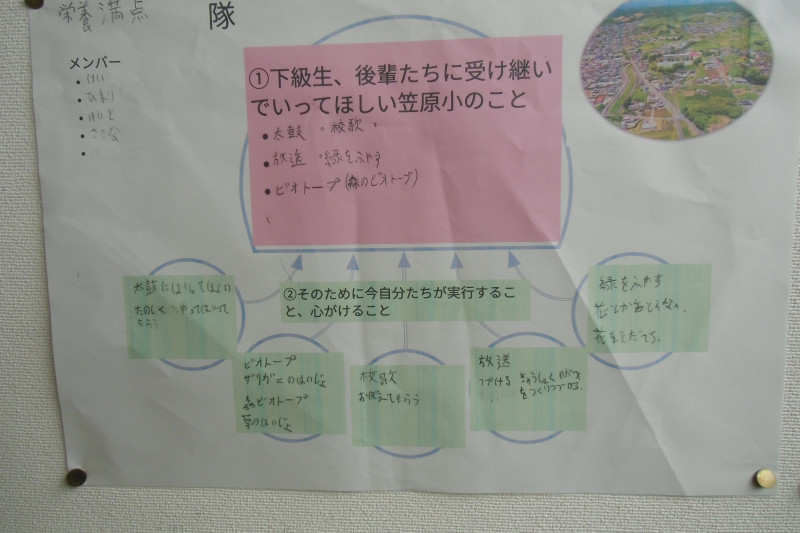 栄養満点 隊
メンバー
・けい
・ひまり
・はいと
・ここな
①下級生、後輩たちに受け継い
でいってほしい笠原小のこと
・太鼓 ・校歌
・放送 ・緑をふやす
・ビオトープ(森のビオトープ)
②そのために今自分たちが実行するこ
と、心がけること
太鼓に
たのしく
もらう
ビオトープ
ザリガニのはいじょ
森ビオトープ
草のはいじょ
校歌
おぼえてもらう
放送
つづける
をつくりつづける
緑をふやす
花とかあとらない。
花をそだてる。